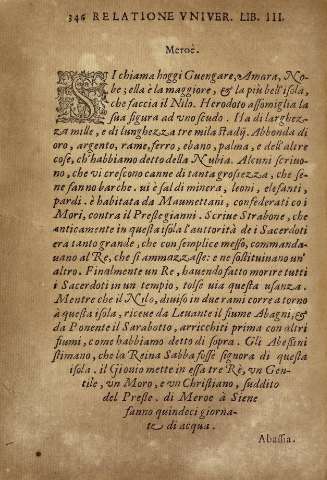 346 RELATIONE VNIVER. LIB. III.
Meroe.
SI chiama hoggi Guengare, Amara, No-
be; ella è la maggiore, & la più bell'isola,
che faccia il Nilo. Herodoto assomiglia la
sua figura ad vno scudo. Ha di larghez-
za mille, e di lunghezza tre mila stadij. Abbonda di
oro, argento, rame, ferro, ebano, palma, e dell'altre
cose, ch'habbiamo detto della Nubia. Alcuni scriuo-
no, che vi crescono canne di tanta grossezza, che se-
ne fanno barche. ui è sal di minera, leoni, elefanti,
pardi. è habitata da Maumettani, confederati co i
Mori, contra il Prete gianni. Scriue Strabone, che
anticamente in questa isola l'auttorità de i Sacerdoti
era tanto grande, che con semplice messo, commanda-
uano al Rè, che si ammazzasse: e ne sostituiuano un'
altro. Finalmente un Re, hauendo fatto morire tutti
i Sacerdoti in un tempio, tolse uia questa usanza.
Mentre che il Nilo, diuiso in due rami corre a torno
à questa isola, riceue da Leuante il fiume Abagni, &
da Ponente il Sarabotto, arricchiti prima con altri
fiumi, come habbiamo detto di sopra. Gli Abessini
stimano, che la Reina Sabba fosse signora di questa
isola. il Giouio mette in essa tre Rè, vn Gen-
tile, vn Moro, e vn Christiano, suddito
del Preste. di Meroe à Siene
fanno quindeci giorna-
te di acqua.
Abassia.